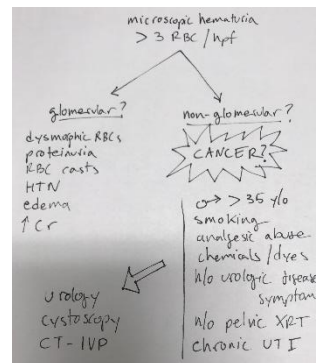 microscopic hematuria
> 3 RBC/hpf
glomerular?
dysmorphic RBCs
proteinuria
RBC casts
HTN
edema
↑ Cr
non-glomerular?
CANCER?
♂ > 35 y/o
smoking
analgesic abuse
chemicals/dyes
h/o urologic disease
symptom
h/o pelvic XRT
chronic UTI
urology
cystoscopy
CT-IVP